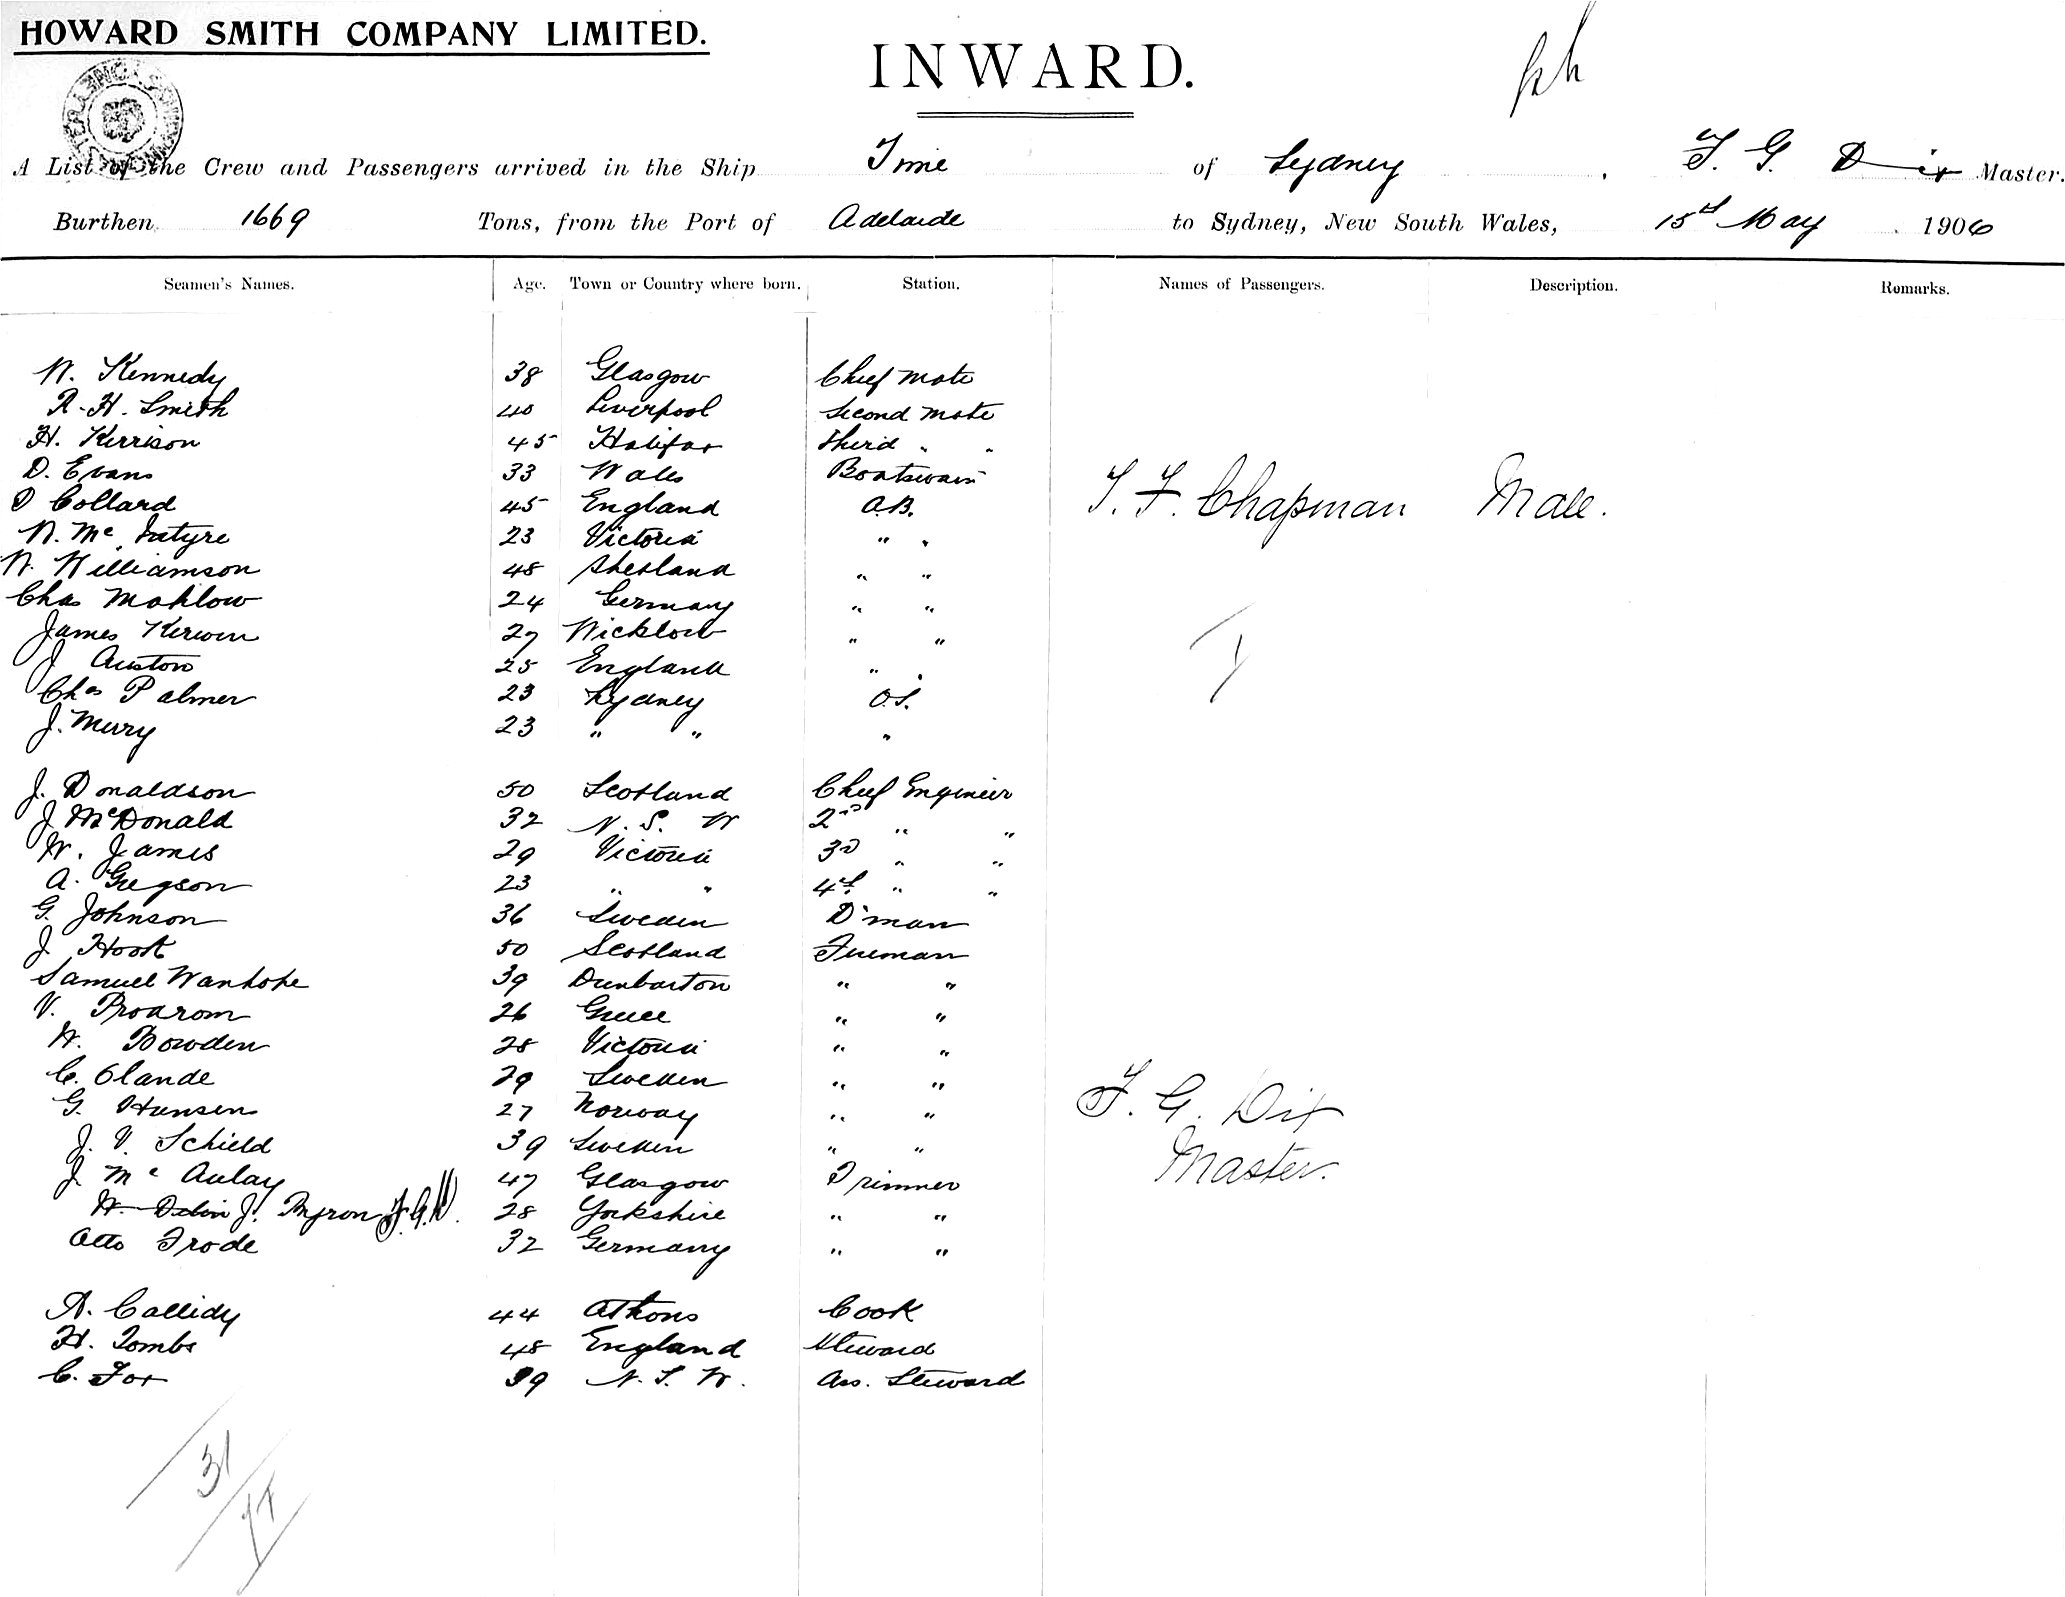 HOWARD SMITH COMPANY LIMITED.
INWARD.
A List of the Crew and Passengers arrived in the Ship Time of Sydney, F. G. Dix Master.
Burthen 1669 Tons, from the Port of Adelaide to Sydney, New South Wales, 15th May 1906
Seamen's Names. Age. Town or Country where born. Station. Names of Passengers. Description. Remarks.
W. Kennedy 38 Glasgow Chief Mate
R. H. Smith 40 Liverpool Second Mate
H. Kerrison 45 Halifax Third " "
D. Evans 33 Wales Boatswain
Collard 45 England A.B. T. F. Chapman Male.
W. Mc Intyre 23 Victoria " "
W. Williamson 48 Shetland " "
Chas Mahlow 24 Germany " "
James Kerwin 27 Wicklow " "
J Auston 25 England " "
Chas Palmer 23 Sydney O.S.
J. Murry 23 " " "
J. Donaldson 50 Scotland Chief Engineer
J McDonald 32 N. S. W 2nd " "
W. James 29 Victoria 3rd " "
A. Gregson 23 " " 4th " "
G. Johnson 36 Sweden D'man
J Hook 50 Scotland Fireman
Samuel 39 Dunbarton " "
V. Prodrom 26 Greece " "
W. Bowden 28 Victoria " "
C. Olande 29 Sweden " "
G. Hansen 27 Norway " " F. G. Dix
J. V. Schield 39 Sweden " " Master.
J. Mc Aulay 47 Glasgow Trimmer
W. J. Myron F.G.D. 28 Yorkshire " "
Otto Trode 32 Germany " "
A. Callidy 44 Athens Cook
H. Tombs 48 England Steward
C. Fox 39 N. S. W. Ass. Steward
31